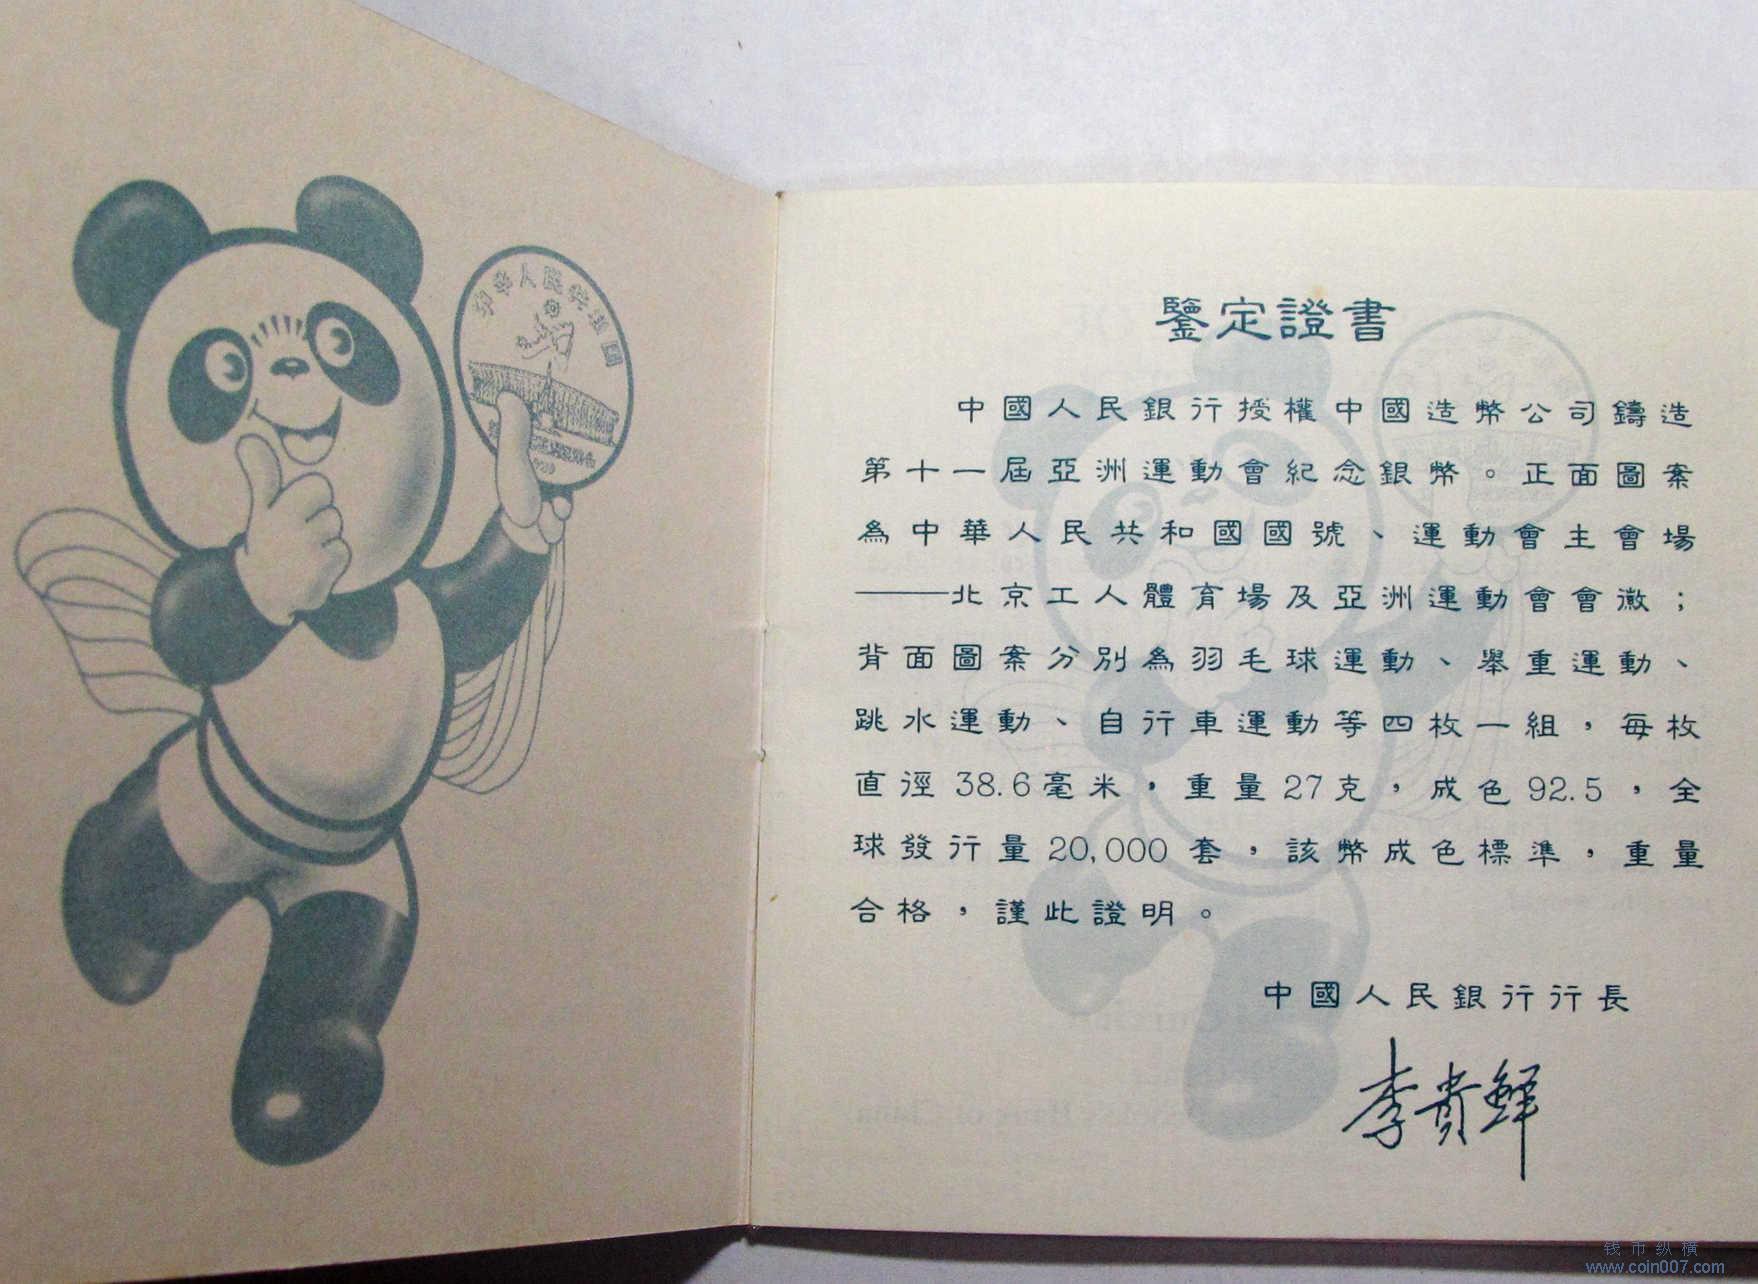 中華人民共和國
鑒定證書
中國人民銀行授權中國造幣公司鑄造
第十一屆亞洲運動會紀念銀幣。正面圖案
為中華人民共和國國號、運動會主會場
——北京工人體育場及亞洲運動會會徽；
背面圖案分別為羽毛球運動、舉重運動、
跳水運動、自行車運動等四枚一組，每枚
直徑38.6毫米，重量27克，成色92.5，全
球發行量20,000套，該幣成色標準，重量
合格，謹此證明。
中國人民銀行行長
李貴鮮
钱币纵横
www.coin007.com